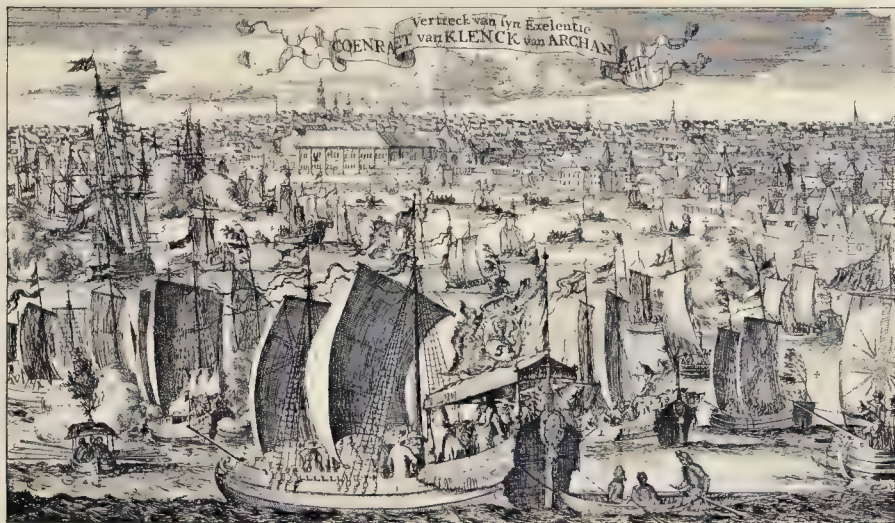 Vertreck van syn Exelentie
COENRAET van KLENCK van ARCHAN
GEL